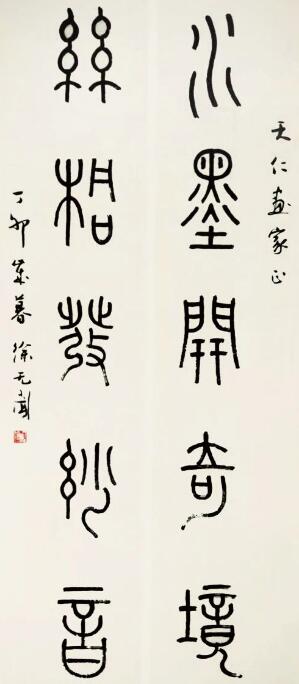 天仁画家正
水墨開奇境
絲桐發妙音
丁卯歲暮徐无聞